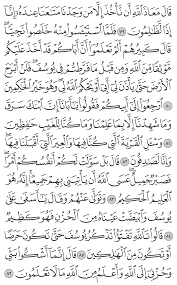 قَالَ مَعَاذَ ٱللَّهِ أَن نَّأْخُذَ إِلَّا مَن وَجَدْنَا مَتَٰعَنَا عِندَهُۥٓ إِنَّآ
إِذًا لَّظَٰلِمُونَ ٧٩ فَلَمَّا ٱسْتَيْـَٔسُوا۟ مِنْهُ خَلَصُوا۟ نَجِيًّا ۖ
قَالَ كَبِيرُهُمْ أَلَمْ تَعْلَمُوٓا۟ أَنَّ أَبَاكُمْ قَدْ أَخَذَ عَلَيْكُم
مَّوْثِقًا مِّنَ ٱللَّهِ وَمِن قَبْلُ مَا فَرَّطتُمْ فِى يُوسُفَ ۖ فَلَنْ أَبْرَحَ
ٱلْأَرْضَ حَتَّىٰ يَأْذَنَ لِىٓ أَبِىٓ أَوْ يَحْكُمَ ٱللَّهُ لِى ۖ وَهُوَ خَيْرُ ٱلْحَٰكِمِينَ
٨٠ ٱرْجِعُوٓا۟ إِلَىٰٓ أَبِيكُمْ فَقُولُوا۟ يَٰٓأَبَانَآ إِنَّ ٱبْنَكَ سَرَقَ
وَمَا شَهِدْنَآ إِلَّا بِمَا عَلِمْنَا وَمَا كُنَّا لِلْغَيْبِ حَٰفِظِينَ
٨١ وَسْـَٔلِ ٱلْقَرْيَةَ ٱلَّتِى كُنَّا فِيهَا وَٱلْعِيرَ ٱلَّتِىٓ أَقْبَلْنَا فِيهَا ۖ
وَإِنَّا لَصَٰدِقُونَ ٨٢ قَالَ بَلْ سَوَّلَتْ لَكُمْ أَنفُسُكُمْ أَمْرًا ۖ
فَصَبْرٌ جَمِيلٌ ۖ عَسَى ٱللَّهُ أَن يَأْتِيَنِى بِهِمْ جَمِيعًا ۚ إِنَّهُۥ هُوَ
ٱلْعَلِيمُ ٱلْحَكِيمُ ٨٣ وَتَوَلَّىٰ عَنْهُمْ وَقَالَ يَٰٓأَسَفَىٰ عَلَىٰ
يُوسُفَ وَٱبْيَضَّتْ عَيْنَاهُ مِنَ ٱلْحُزْنِ فَهُوَ كَظِيمٌ
٨٤ قَالُوا۟ تَٱللَّهِ تَفْتَؤُا۟ تَذْكُرُ يُوسُفَ حَتَّىٰ تَكُونَ حَرَضًا
أَوْ تَكُونَ مِنَ ٱلْهَٰلِكِينَ ٨٥ قَالَ إِنَّمَآ أَشْكُوا۟ بَثِّى
وَحُزْنِىٓ إِلَى ٱللَّهِ وَأَعْلَمُ مِنَ ٱللَّهِ مَا لَا تَعْلَمُونَ ٨٦